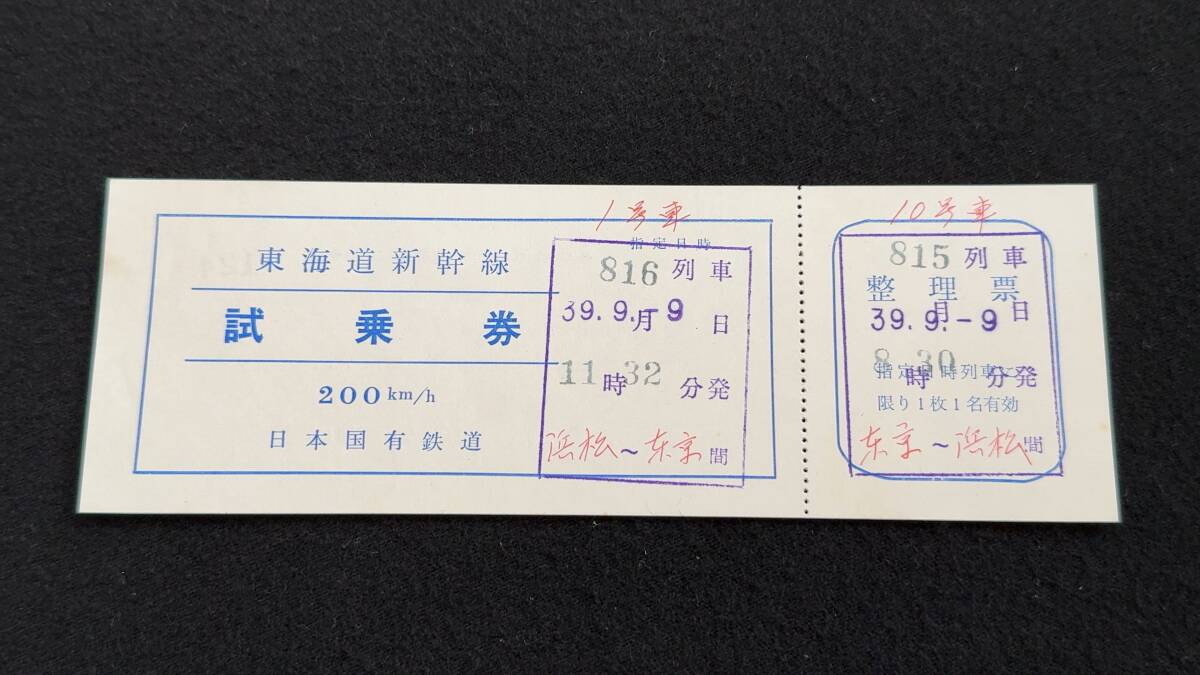 東海道新幹線
試乗券
200km/h
日本国有鉄道
1号車
指定日時
816列車
39.9.-9
月 日
11 32
時 分発
浜松～东京間
10号車
815列車
整理票
39.9.-9
月 日
8 30
時 分発
指定日時列車に
限り1枚1名有効
东京～浜松間